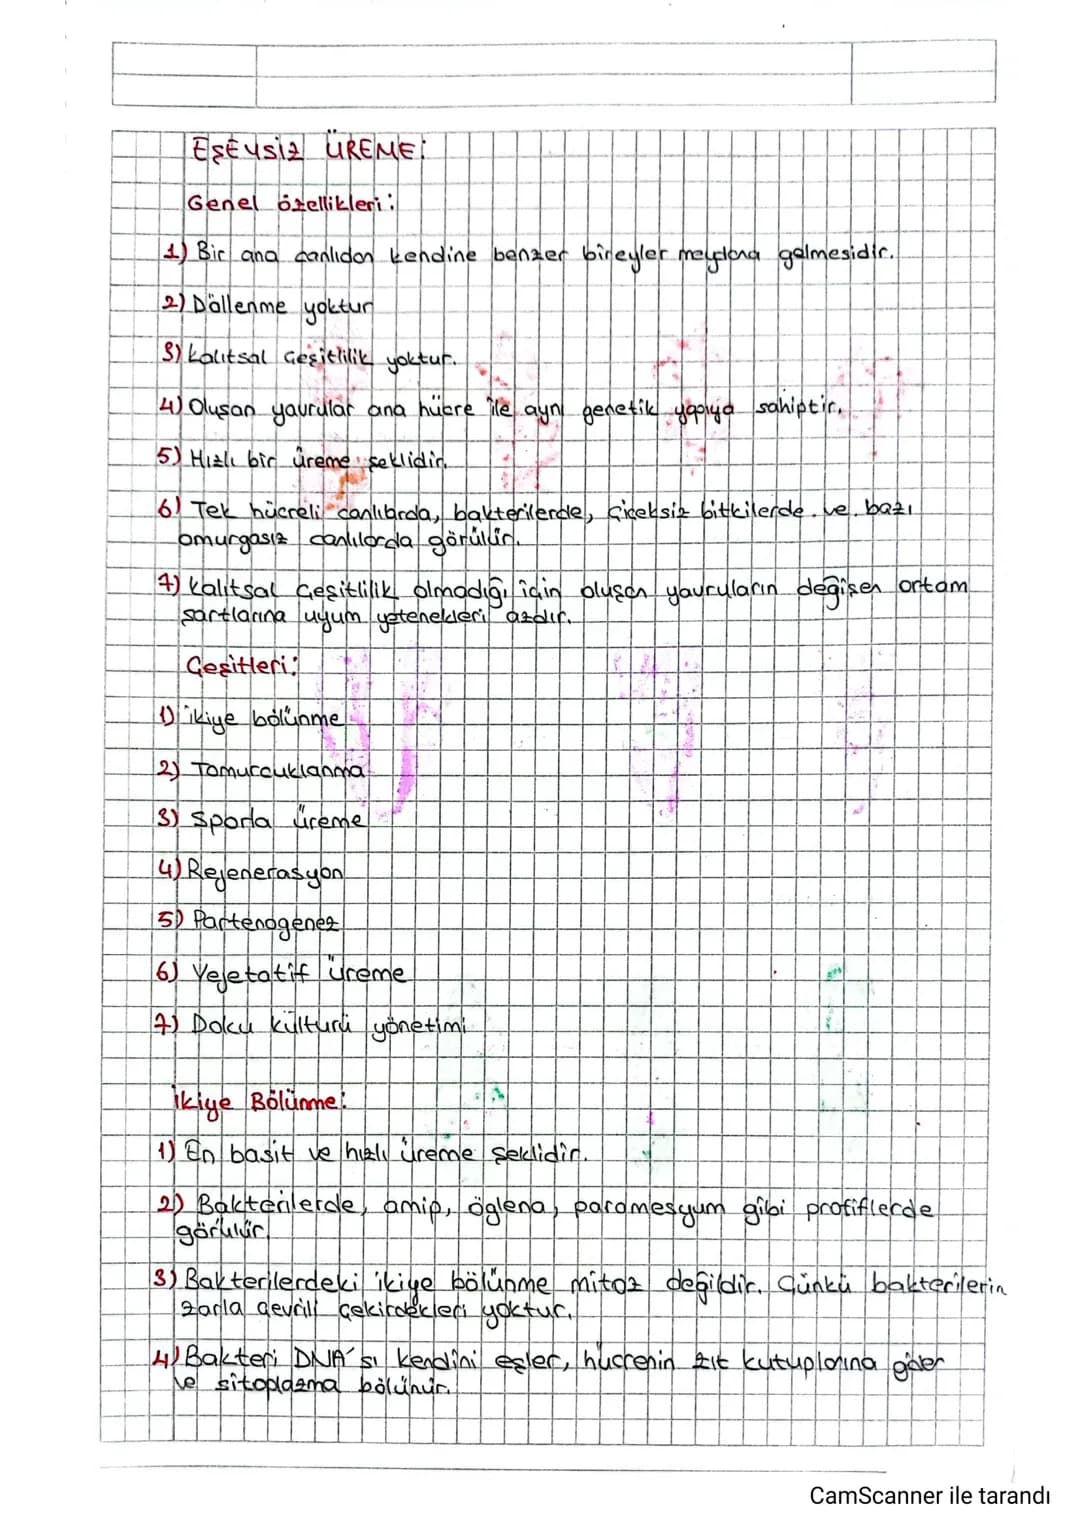 EŞEYSİZ ÜREME:
Genel özellikleri:
1) Bir ana canlıdan kendine benzer bireyler meydana gelmesidir.
2) Döllenme yoktur
3) Kalıtsal çeşitlilik yoktur.
4) Oluşan yavrular ana hücre ile aynı genetik yapıya sahiptir.
5) Hızlı bir üreme şeklidir.
6) Tek hücreli canlılarda, bakterilerde, çiçeksiz bitkilerde ve bazı
omurgasız canlılarda görülür.
7) Kalıtsal çeşitlilik olmadığı için oluşan yavruların değişen ortam
şartlarına uyum yetenekleri azdır.
Çeşitleri:
1) ikiye bölünme
2) Tomurcuklanma
3) Sporla üreme
4) Rejenerasyon
5) Partenogenez
6) Vejetatif üreme
7) Doku kültürü yönetimi
İkiye Bölünme:
1) En basit ve hızlı üreme şeklidir.
2) Bakterilerde, amip, öglena, paramesyum gibi protiflerde
görülür.
3) Bakterilerdeki ikiye bölünme mitoz değildir. Çünkü bakterilerin
zarla çevrili çekirdekleri yoktur.
4) Bakteri DNA'sı kendini eşler, hücrenin zıt kutuplarına gider
ve sitoplazma bölünür.
CamScanner ile tarandı